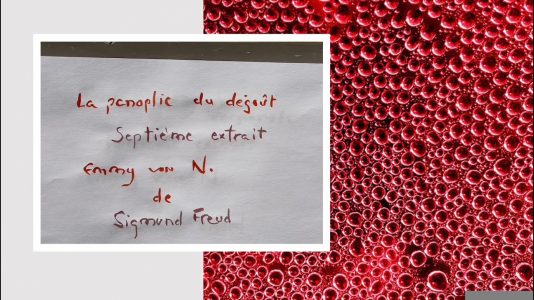 La panoplie du dégoût
Septième extrait
Emmy von N.
de
Sigmund Freud